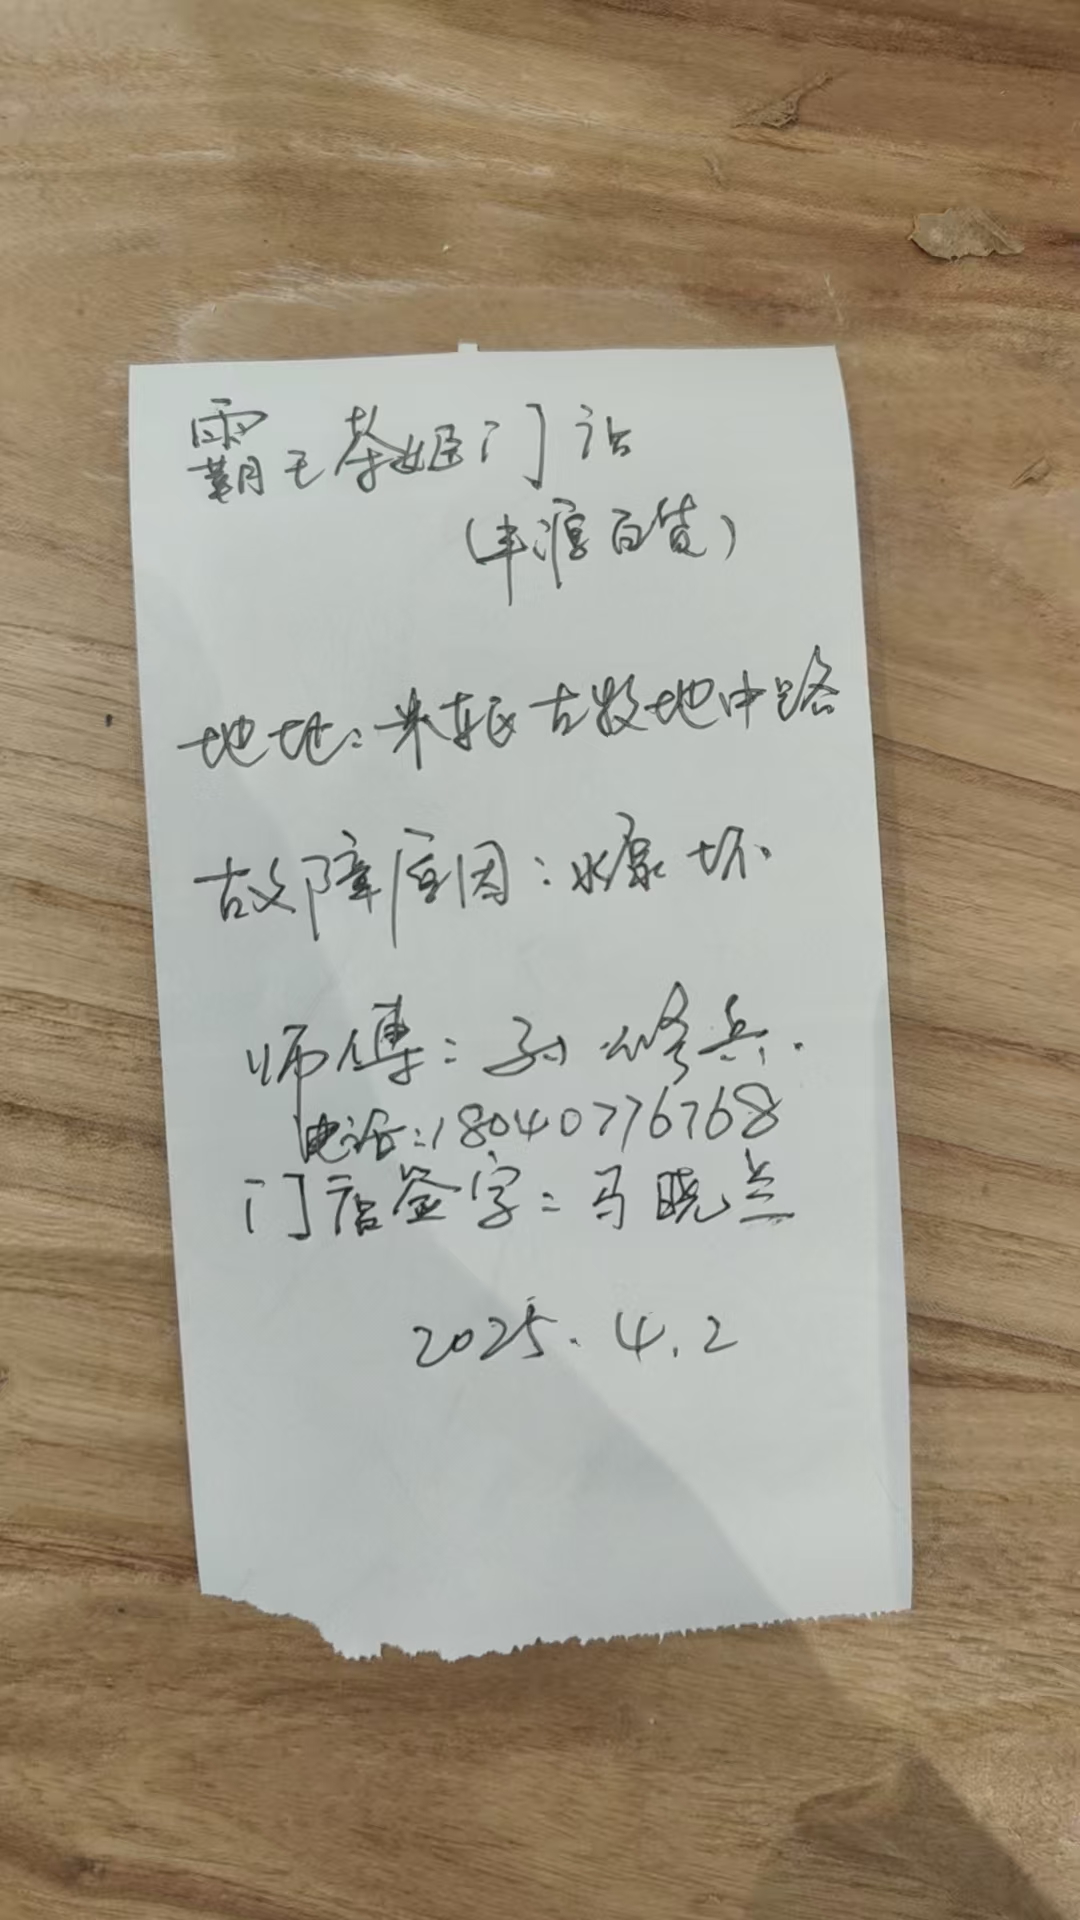 霸王茶姬门店
(丰源百货)
地址:米东区古牧地中路
故障原因:水泵坏.
师傅:孙修兵.
电话:18040776768
门店签字:马晓兰
2025.4.2